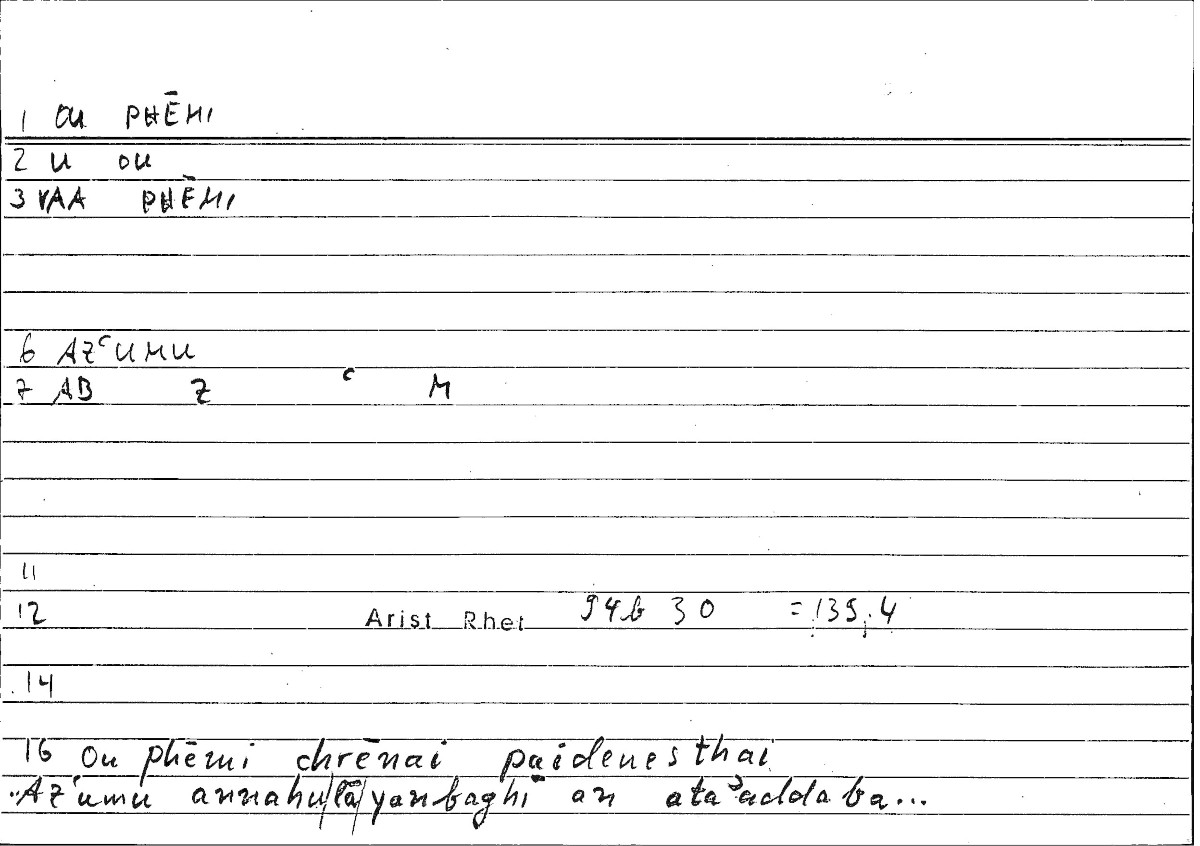 1 OU PHĒMI
2 U OU
3 VAA PHĒMI
6 AZʿUMU
7 AB Z ʿ M
11
12 Arist Rhet 94b 30 = 139,4
14
16 Ou phēmi chrēnai paideuesthai
Azʿumu annahu/lā/yanbaghī an ataʾaddaba...